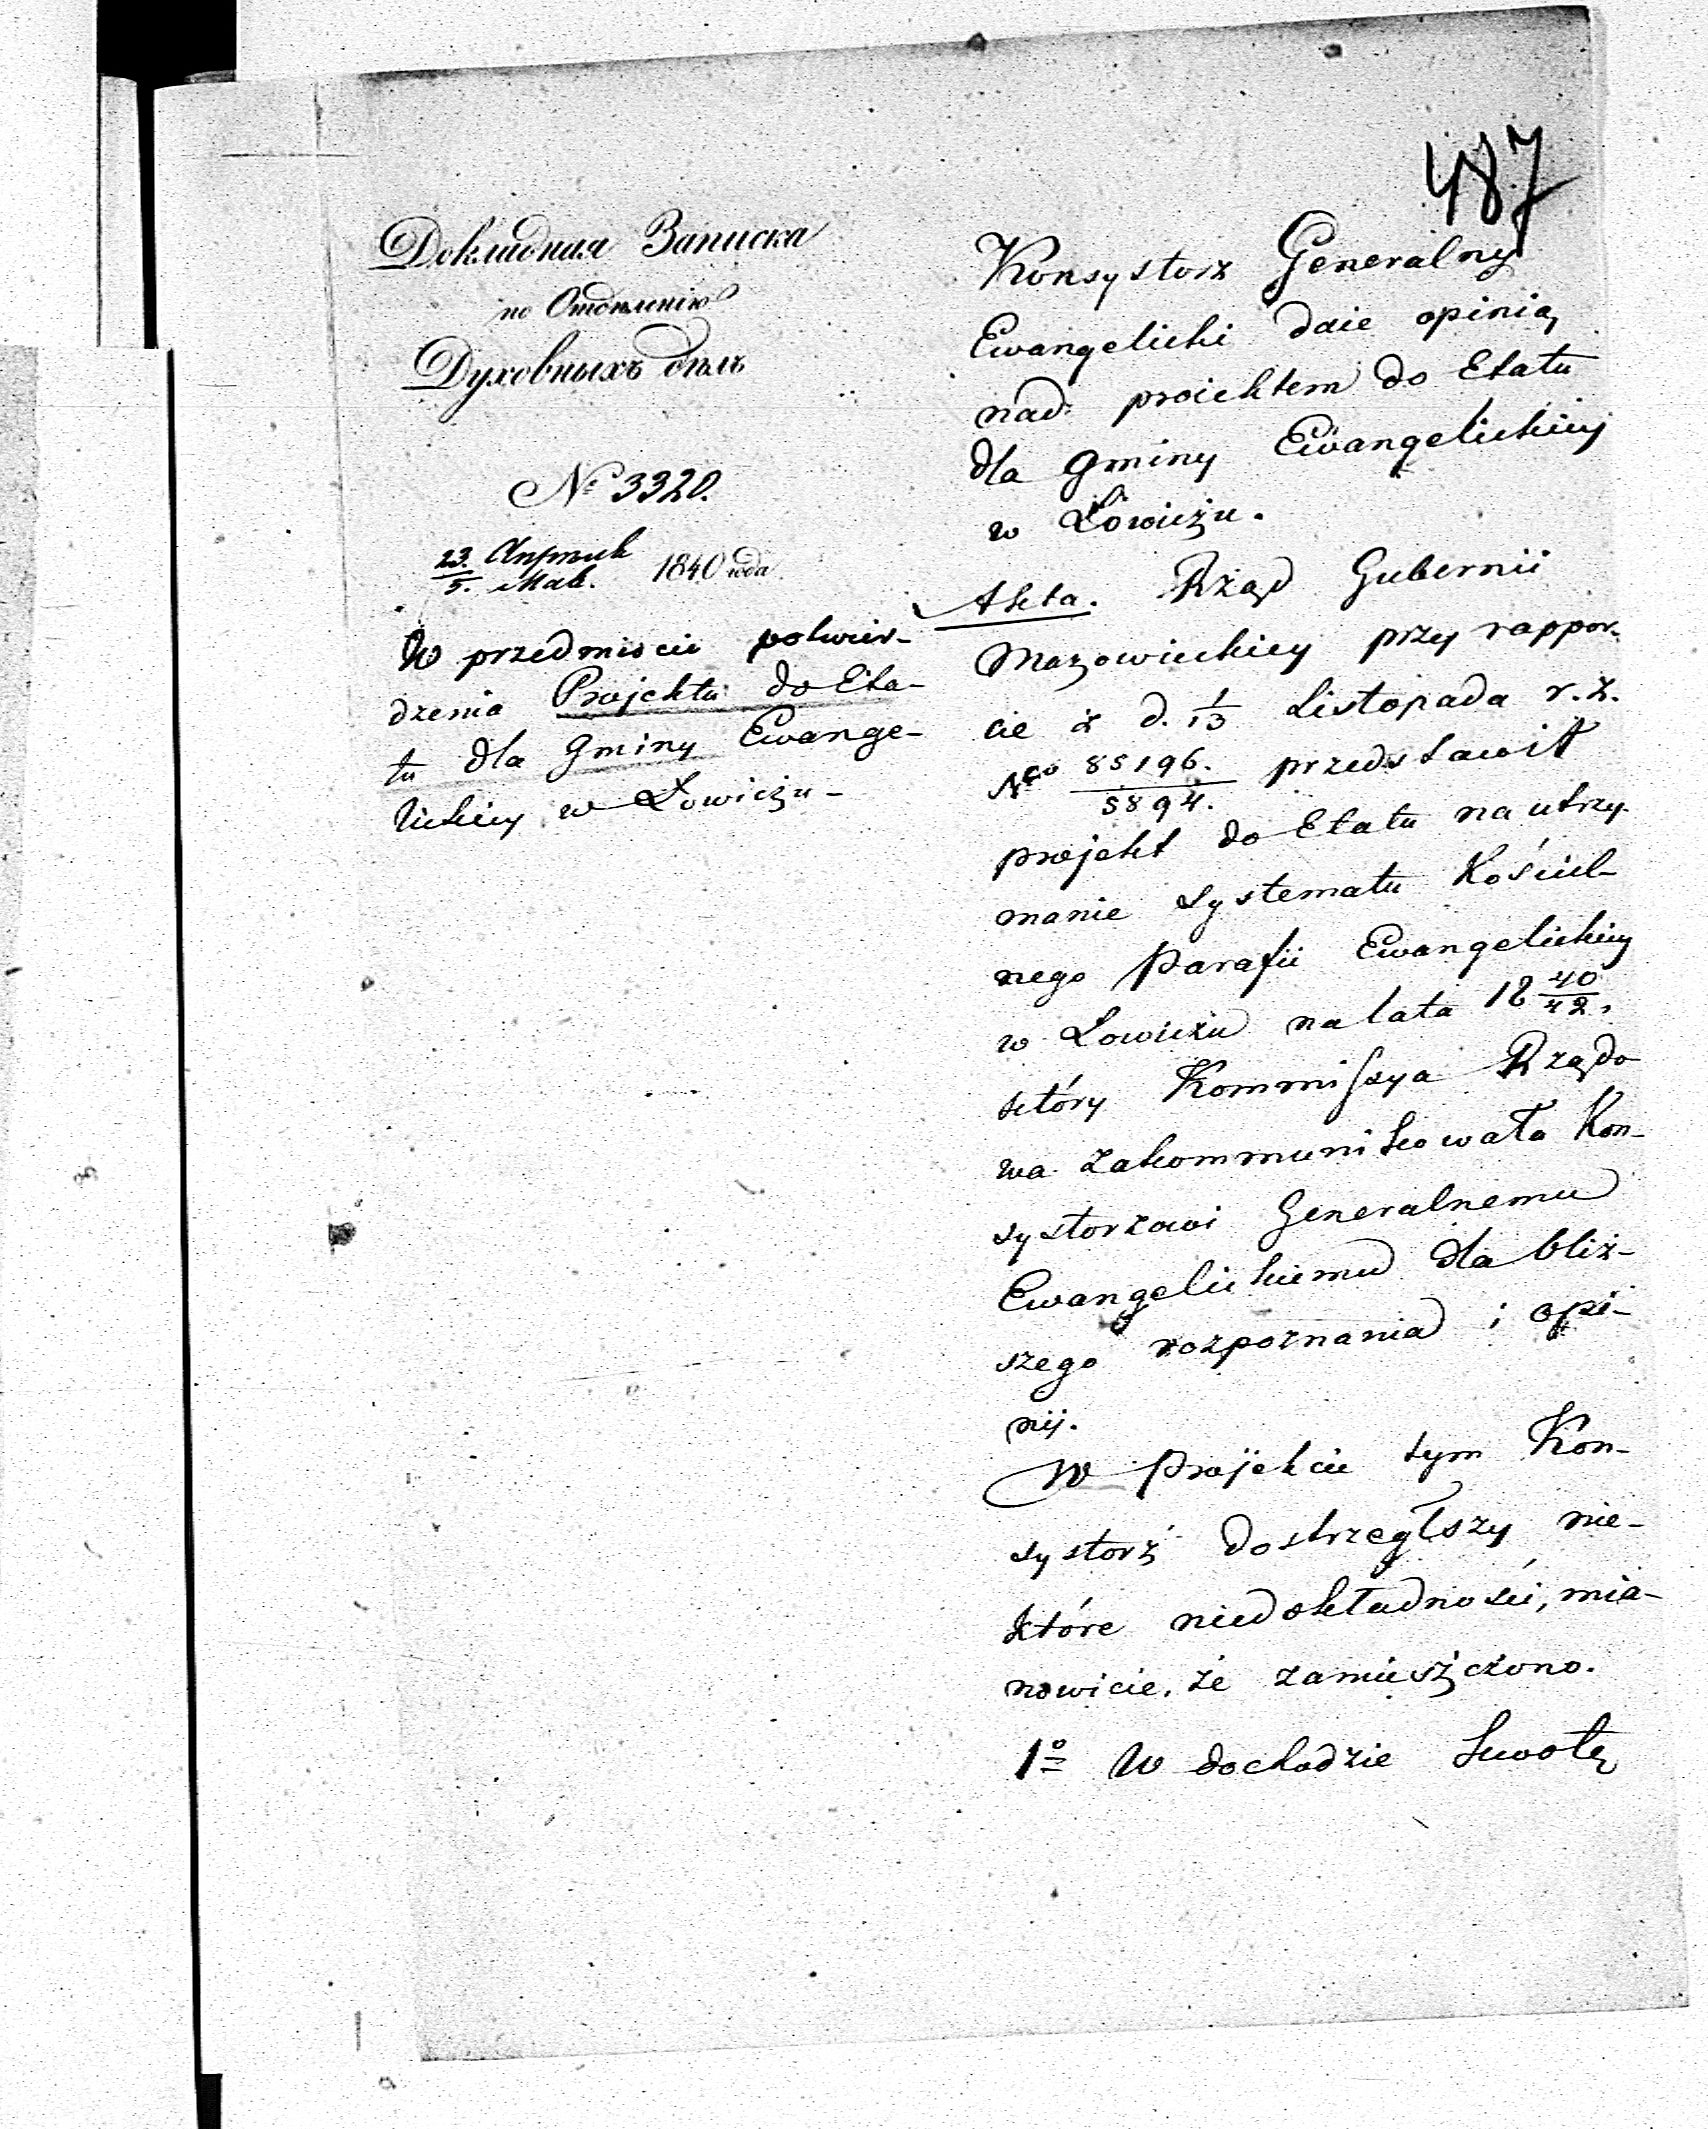 487
Докладная Записка
по Отдѣленію
Духовныхъ дѣлъ
№ 3320.
23. Апрѣля
5. Мая. 1840 года
W przedmiocie potwier-
dzenia Projektu do Eta-
tu dla Gminy Ewange-
lickiey w Łowiczu -
Konsystorz Generalny
Ewangelicki daie opinią
nad proiektem do Etatu
dla Gminy Ewangelickiey
w Łowiczu.
Akta. Rząd Gubernii
Mazowieckiey przy rappor-
cie z d. 1/13 Listopada r. z.
No 85196./5894. przedstawił
projekt do Etatu na utrzy-
manie systematu Kościel-
nego Parafii Ewangelickiey
w Łowiczu na lata 18 40/42,
który Kommissya Rządo-
wa zakommunikowała Kon-
systorzowi Generalnemu
Ewangelickiemu dla bliż-
szego rozpoznania i opi-
nij.
W Projekcie tym Kon-
systorz dostrzegłszy nie-
które niedokładności, mia-
nowicie, że zamieszczono.
1o W dochodzie kwotę